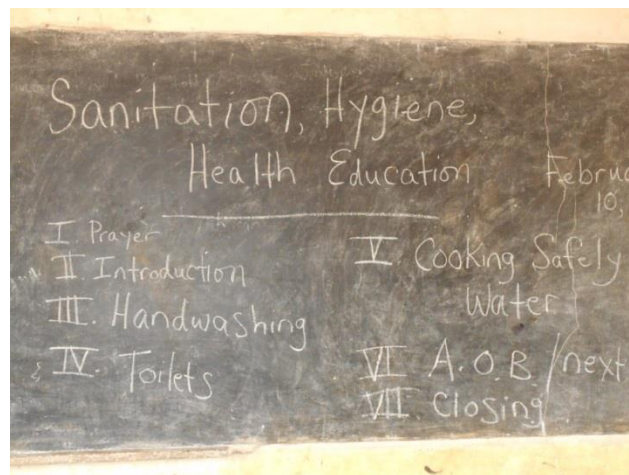 Sanitation, Hygiene,
Health Education
10,
I. Prayer
II. Introduction
III. Handwashing
IV. Toilets
V Cooking Safely
Water
VI A.O.B. / next
VII Closing